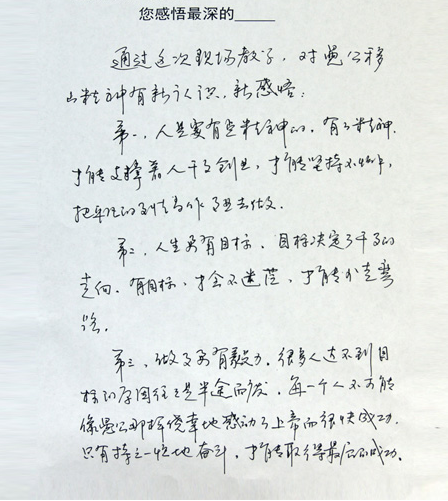 您感悟最深的____
通过这次现场教学,对愚公移
山精神有新认识,新感悟:
第一,人是要有些精神的。有了精神,
才能支撑着人干事创业,才能坚持不懈,
把单位的事情当作事业去做。
第二,人生要有目标。目标决定了干事的
走向。有目标,才会不迷茫,才能少走弯
路。
第三,做事要有毅力。很多人达不到目
标的原因往往是半途而废,每一个人不可能
像愚公那样侥幸地感动了上帝而很快成功,
只有持之一恒地奋斗,才能取得最后的成功。